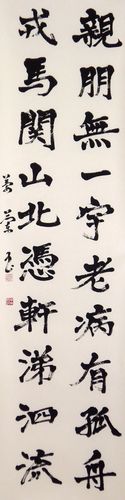 親朋無一字老病有孤舟
戎馬関山北憑軒涕泗流